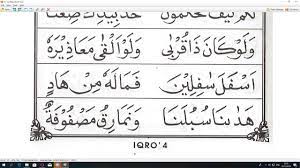 وَلَوْكَانَ ذَا قُرْبٰى وَلَوْاَلْقٰى مَعَاذِيْرَهٗ
اَسْفَلَ سٰفِلِيْنَ فَمَالَهٗ مِنْ هَادٍ
هَدٰىنَا سُبُلَنَا وَنَمَارِقُ مَصْفُوْفَةٌ
IQRO' 4